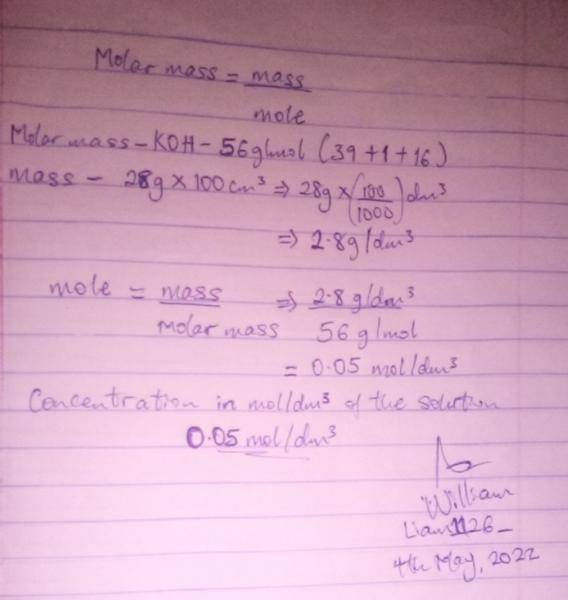 Molar mass = mass
mole
Molar mass - KOH - 56g/mol (39 +1 + 16)
mass - 28g × 100 cm³ ⇒ 28g × (100/1000) dm³
⇒ 2.8g/dm³
mole = mass ⇒ 2.8g/dm³
Molar mass 56g/mol
= 0.05 mol/dm³
Concentration in mol/dm³ of the solution
0.05 mol/dm³
William
Liam1126_
4th May, 2022